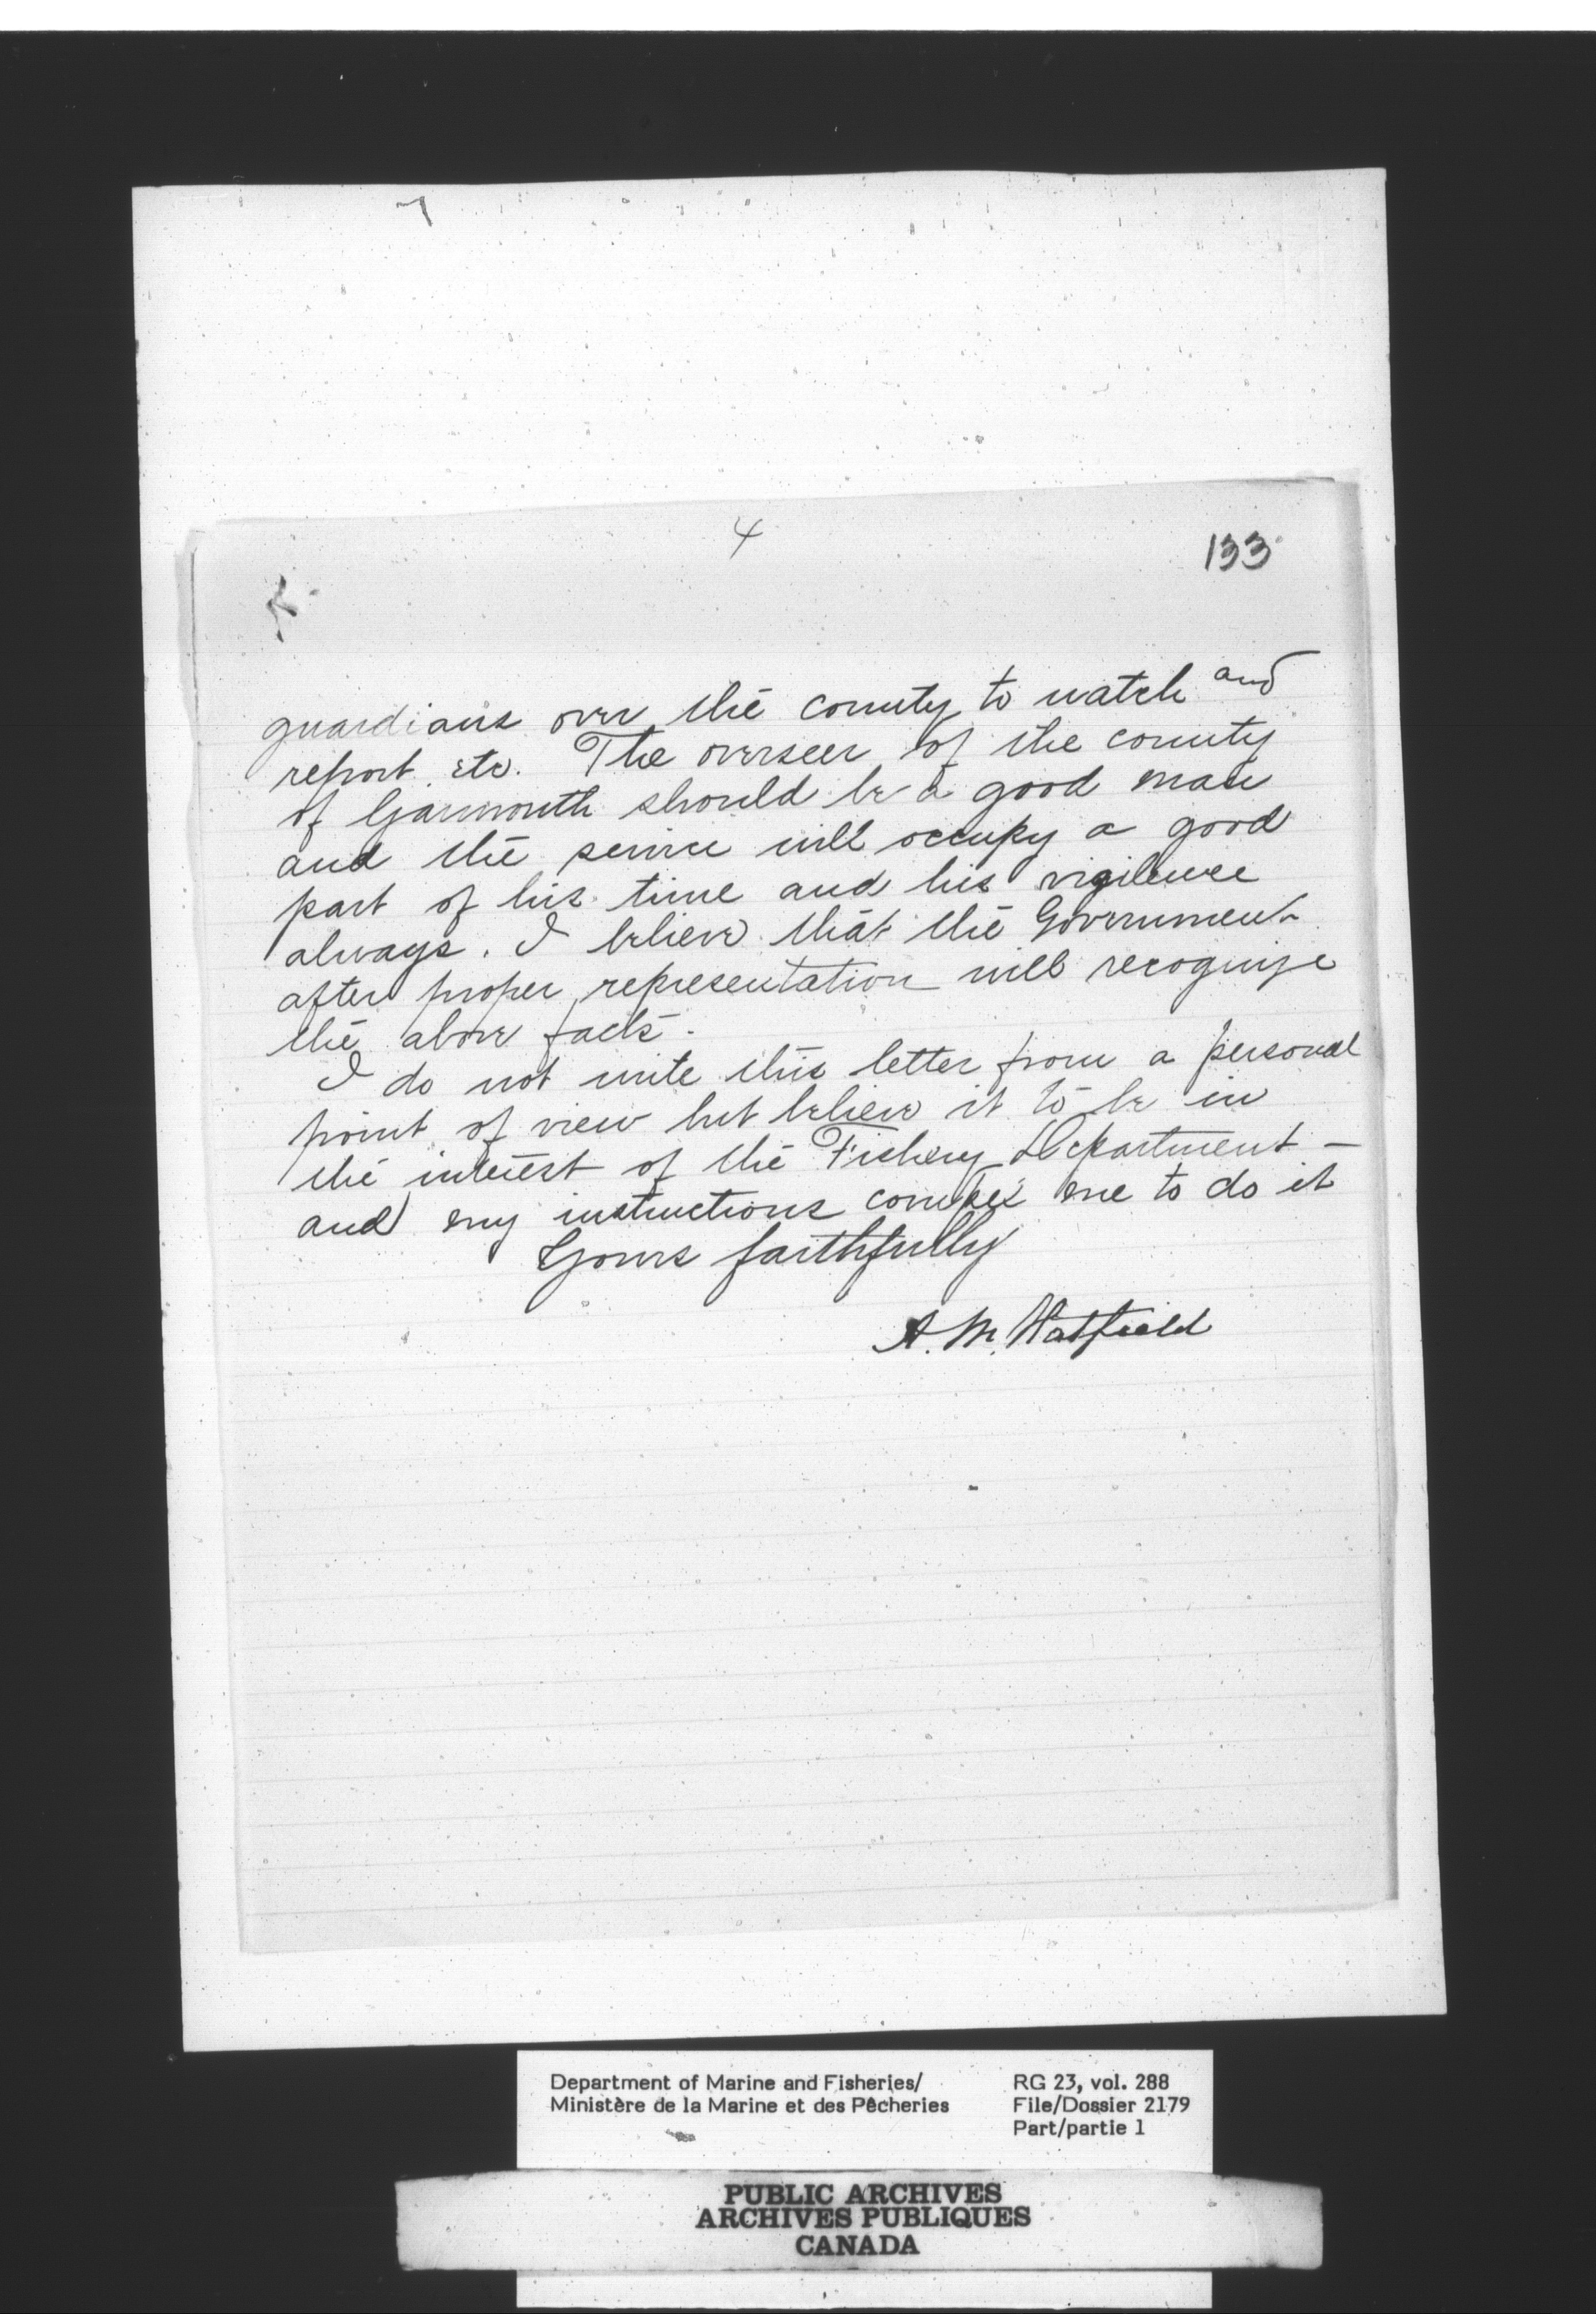 4
133
guardians over the county to watch and
report etc. The overseer of the county
of Yarmouth should be a good man
and the service will occupy a good
part of his time and his vigilence
always. I believe that the Government
after proper representation will recognize
the above facts.
I do not write this letter from a personal
point of view but believe it to be in
the interest of the Fishery Department —
and my instructions compel me to do it
Yours faithfully
A. M. Hatfield
Department of Marine and Fisheries/
Ministère de la Marine et des Pêcheries
RG 23, vol. 288
File/Dossier 2179
Part/partie 1
PUBLIC ARCHIVES
ARCHIVES PUBLIQUES
CANADA